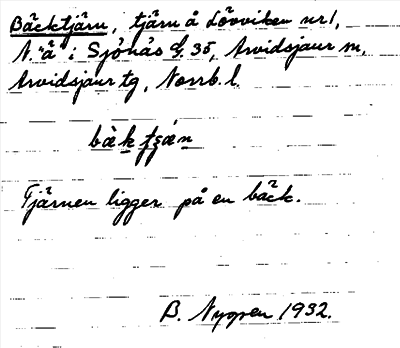 Bäcktjärn, tjärn å Lövviken nr 1,
N. "å" i Sjönäs 35, Arvidsjaur m,
Arvidsjaur tg, Norrb. l.
Tjärnen ligger på en bäck.
B. Nygren 1932.